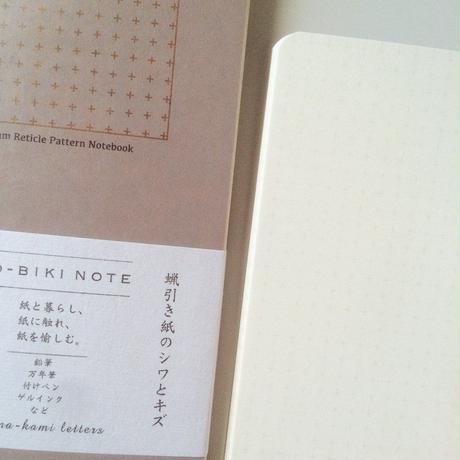 Reticle Pattern Notebook
-BIKI NOTE
蝋引き紙のシワとキズ
紙と暮らし、
紙に触れ、
紙を愉しむ。
鉛筆
万年筆
付けペン
ゲルインク
など
-kami letters